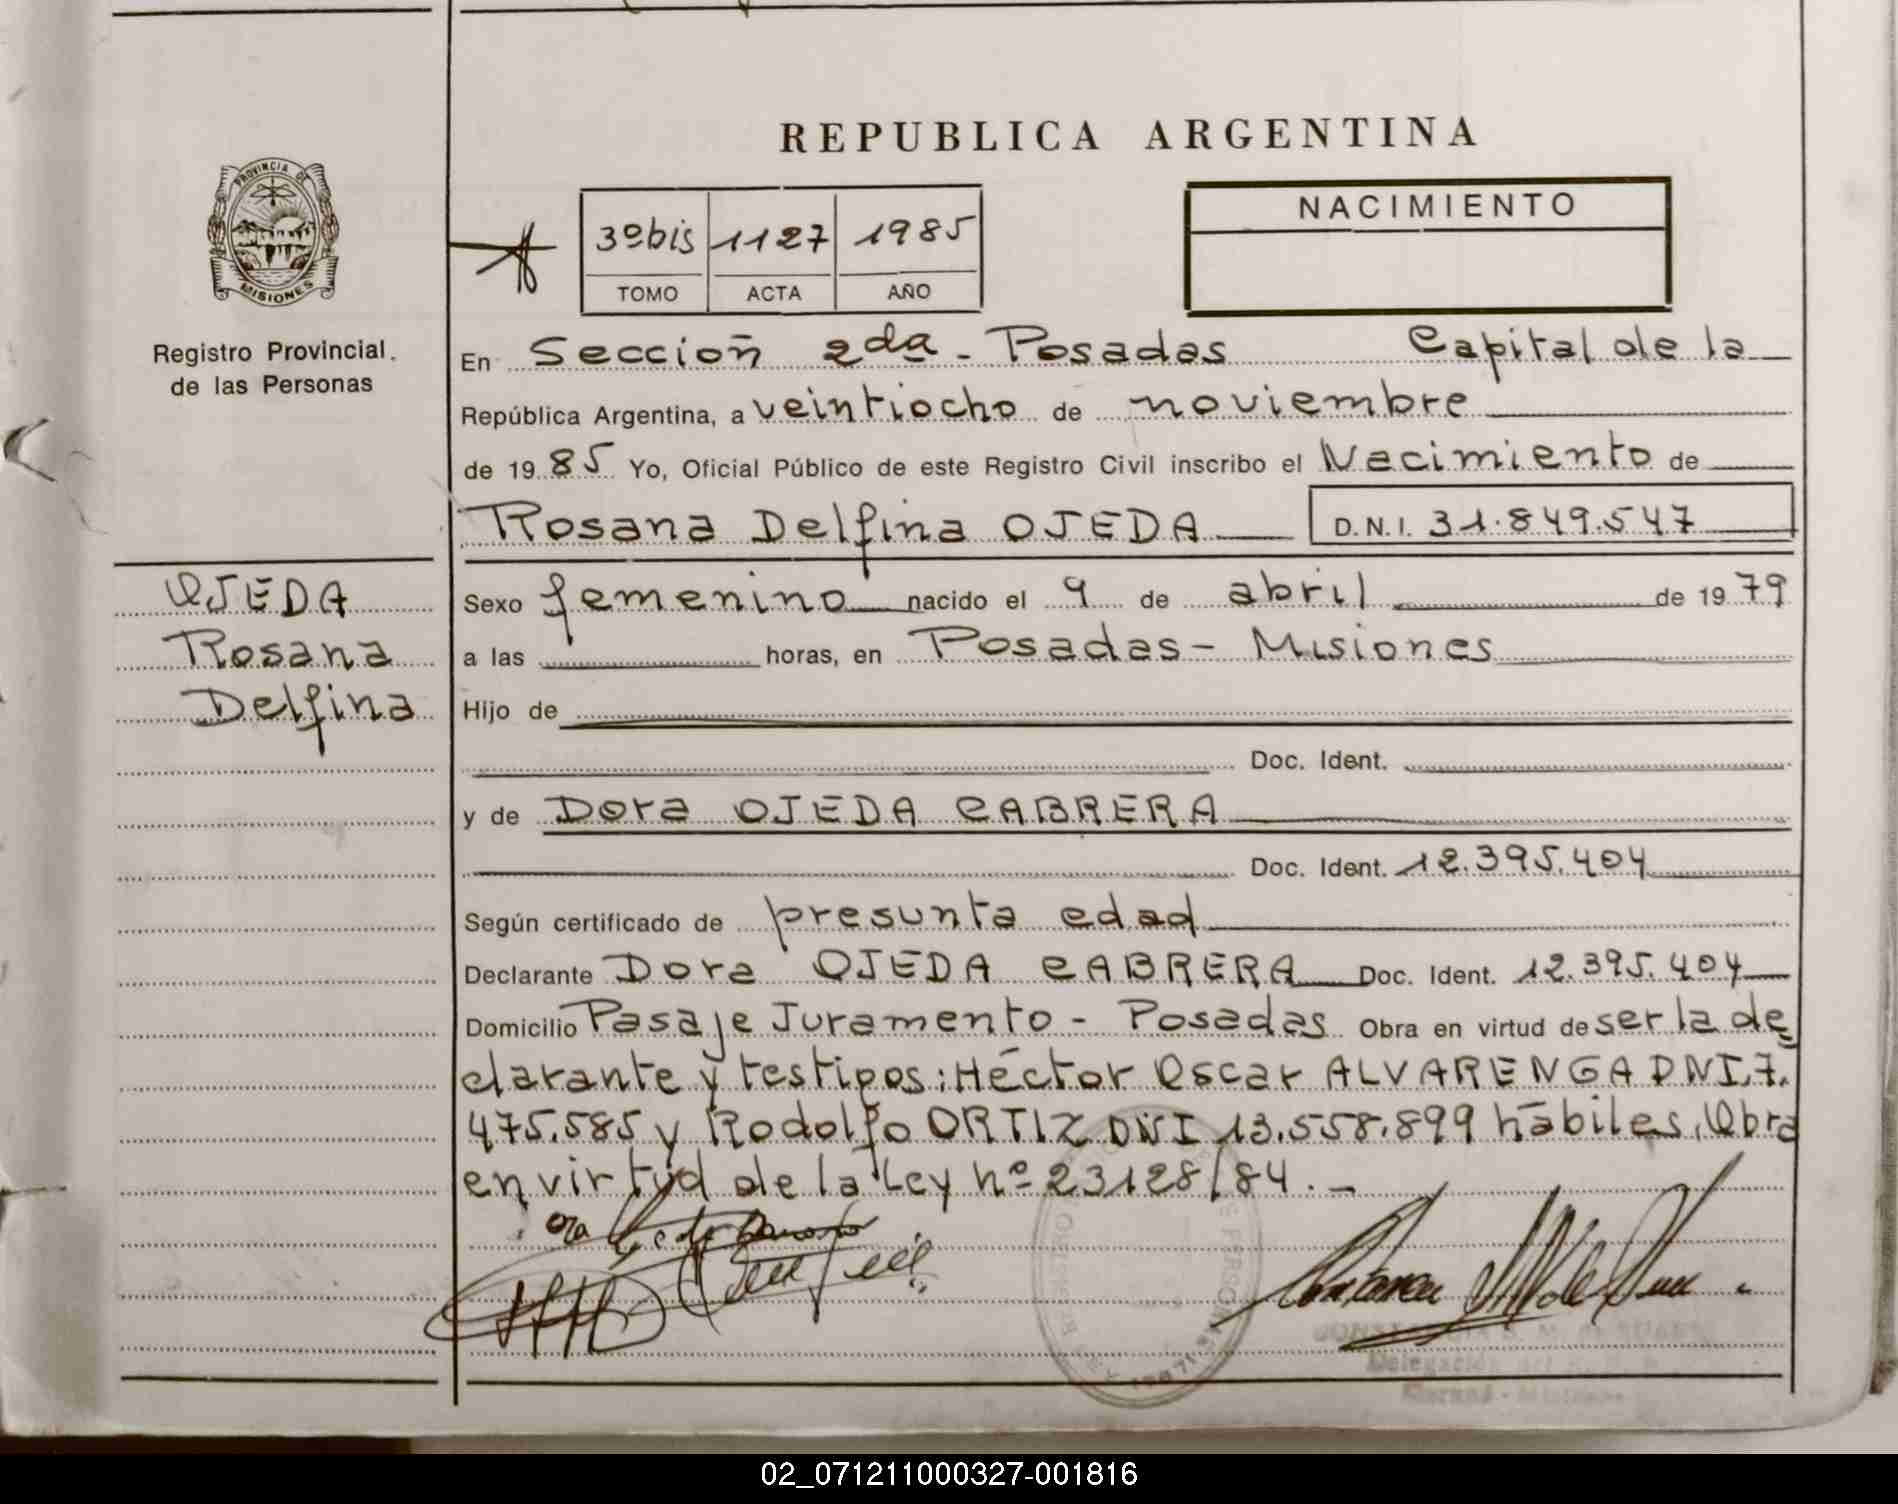 REPUBLICA ARGENTINA
PROVINCIA DE
MISIONES
Registro Provincial
de las Personas
3º bis 1127 1985
TOMO ACTA AÑO
NACIMIENTO
En Sección 2da - Posadas Capital de la
República Argentina, a veintiocho de noviembre
de 1985 Yo, Oficial Público de este Registro Civil inscribo el Nacimiento de
Rosana Delfina OJEDA D.N.I. 31.849.547
OJEDA
Rosana
Delfina
Sexo femenino nacido el 9 de abril de 1979
a las horas, en Posadas - Misiones
Hijo de
Doc. Ident.
y de Dora OJEDA CABRERA
Doc. Ident. 12.395.404
Según certificado de presunta edad
Declarante Dora OJEDA CABRERA Doc. Ident. 12.395.404
Domicilio Pasaje Juramento - Posadas Obra en virtud de ser la de
clarante y testigos: Héctor Oscar ALVARENGA DNI.7.
475.585 y Rodolfo ORTIZ DNI 13.558.899 hábiles, Obra
en virtud de la Ley nº 23128/84.-
02_071211000327-001816